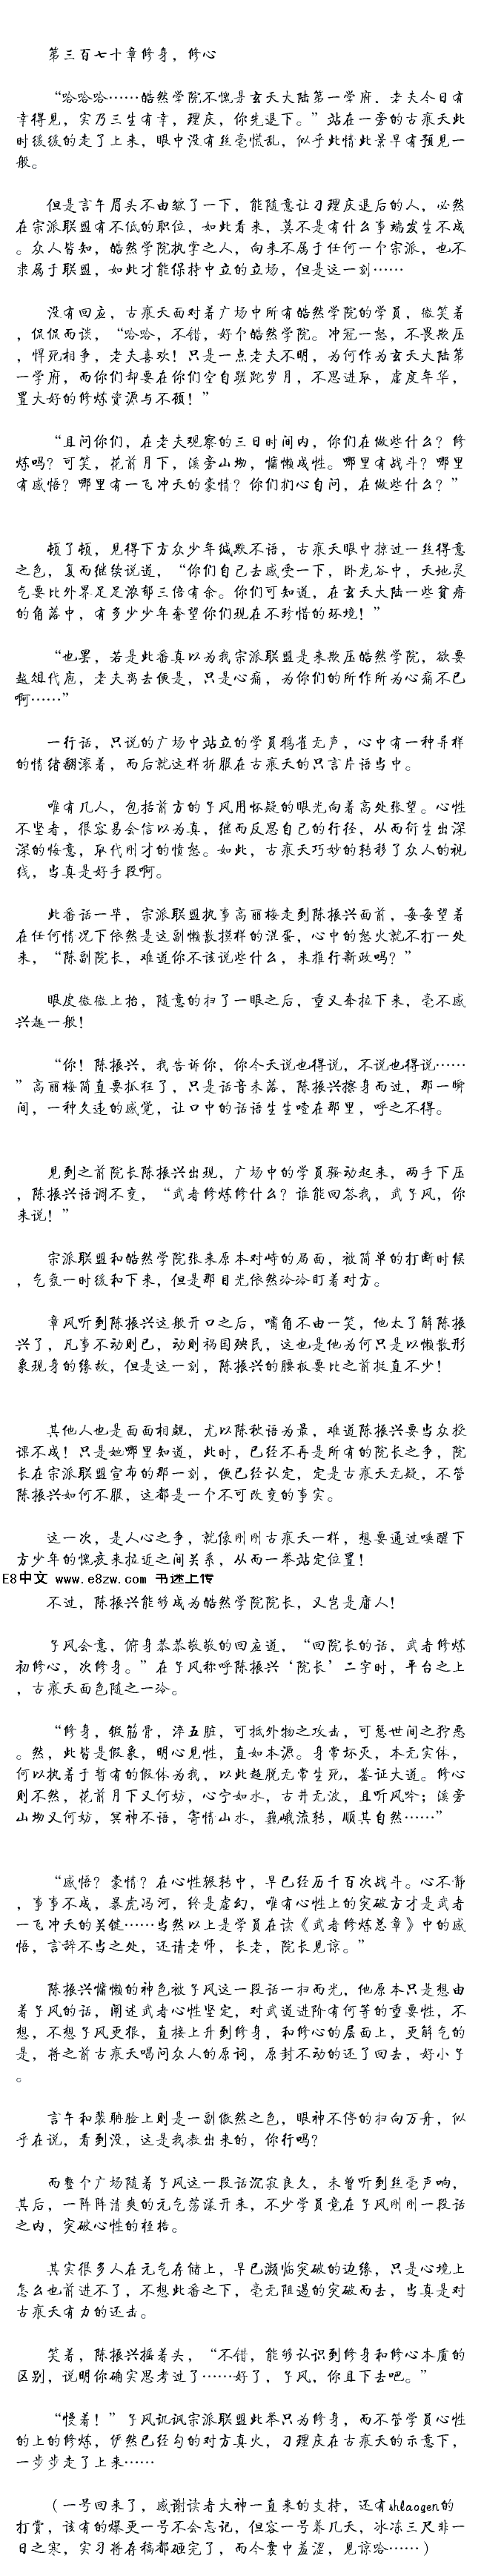 第三百七十章修身，修心
“哈哈哈……皓然学院不愧是玄天大陆第一学府．老夫今日有
幸得见，实乃三生有幸，理庆，你先退下。”站在一旁的古痕天此
时缓缓的走了上来，眼中没有丝毫慌乱，似乎此情此景早有预见一
般。
但是言午眉头不由皱了一下，能随意让刁理庆退后的人，必然
在宗派联盟有不低的职位，如此看来，莫不是有什么事端发生不成
。众人皆知，皓然学院执掌之人，向来不属于任何一个宗派，也不
隶属于联盟，如此才能保持中立的立场，但是这一刻……
没有回应，古痕天面对着广场中所有皓然学院的学员，微笑着
，侃侃而谈，“哈哈，不错，好个皓然学院。冲冠一怒，不畏欺压
，悍死相争，老夫喜欢！只是一点老夫不明，为何作为玄天大陆第
一学府，而你们却要在你们空自蹉跎岁月，不思进取，虚度年华，
置大好的修炼资源与不顾！”
“且问你们，在老夫观察的三日时间内，你们在做些什么？修
炼吗？可笑，花前月下，溪旁山坳，慵懒成性。哪里有战斗？哪里
有感悟？哪里有一飞冲天的豪情？你们扪心自问，在做些什么？”
顿了顿，见得下方众少年缄默不语，古痕天眼中掠过一丝得意
之色，复而继续说道，“你们自己去感受一下，卧龙谷中，天地灵
气要比外界足足浓郁三倍有余。你们可知道，在玄天大陆一些贫瘠
的角落中，有多少少年奢望你们现在不珍惜的环境！”
“也罢，若是此番真以为我宗派联盟是来欺压皓然学院，欲要
越俎代庖，老夫离去便是，只是心痛，为你们的所作所为心痛不已
啊……”
一行话，只说的广场中站立的学员鸦雀无声，心中有一种异样
的情绪翻滚着，而后就这样折服在古痕天的只言片语当中。
唯有几人，包括前方的孓风用怀疑的眼光向着高处张望。心性
不坚者，很容易会信以为真，继而反思自己的行径，从而衍生出深
深的悔意，取代刚才的愤怒。如此，古痕天巧妙的转移了众人的视
线，当真是好手段啊。
此番话一毕，宗派联盟执事高丽梅走到陈振兴面前，妄妄望着
在任何情况下依然是这副懒散摸样的混蛋，心中的怒火就不打一处
来，“陈副院长，难道你不该说些什么，来推行新政吗？”
眼皮微微上抬，随意的扫了一眼之后，重又耷拉下来，毫不感
兴趣一般！
“你！陈振兴，我告诉你，你今天说也得说，不说也得说……
”高丽梅简直要抓狂了，只是话音未落，陈振兴擦身而过，那一瞬
间，一种久违的感觉，让口中的话语生生噎在那里，呼之不得。
见到之前院长陈振兴出现，广场中的学员骚动起来，两手下压
，陈振兴语调不变，“武者修炼修什么？谁能回答我，武孓风，你
来说！”
宗派联盟和皓然学院张来原本对峙的局面，被简单的打断时候
，气氛一时缓和下来，但是那目光依然冷冷盯着对方。
章风听到陈振兴这般开口之后，嘴角不由一笑，他太了解陈振
兴了，凡事不动则已，动则祸国殃民，这也是他为何只是以懒散形
象现身的缘故，但是这一刻，陈振兴的腰板要比之前挺直不少！
其他人也是面面相觑，尤以陈秋语为最，难道陈振兴要当众授
课不成！只是她哪里知道，此时，已经不再是所有的院长之争，院
长在宗派联盟宣布的那一刻，便已经认定，定是古痕天无疑，不管
陈振兴如何不服，这都是一个不可改变的事实。
这一次，是人心之争，就像刚刚古痕天一样，想要通过唤醒下
方少年的愧疚来拉近之间关系，从而一举站定位置！
E8中文 www.e8zw.com 书迷上传
不过，陈振兴能够成为皓然学院院长，又岂是庸人！
孓风会意，俯身恭恭敬敬的回应道，“回院长的话，武者修炼
初修心，次修身。”在孓风称呼陈振兴‘院长’二字时，平台之上
，古痕天面色随之一冷。
“修身，锻筋骨，淬五脏，可抵外物之攻击，可惩世间之狰恶
。然，此皆是假象，明心见性，直如本源。身常坏灭，本无实体，
何以执着于暂有的假体为我，以此超脱无常生死，鉴证大道。修心
则不然，花前月下又何妨，心宁如水，古井无波，且听风吟；溪旁
山坳又何妨，冥神不语，寄情山水，巍峨流转，顺其自然……”
“感悟？豪情？在心性辗转中，早已经历千百次战斗。心不静
，事事不成，暴虎冯河，终是虚幻，唯有心性上的突破方才是武者
一飞冲天的关键……当然以上是学员在读《武者修炼总章》中的感
悟，言辞不当之处，还请老师，长老，院长见谅。”
陈振兴慵懒的神色被孓风这一段话一扫而光，他原本只是想由
着孓风的话，阐述武者心性坚定，对武道进阶有何等的重要性，不
想，不想孓风更狠，直接上升到修身，和修心的层面上，更解气的
是，将之前古痕天喝问众人的原词，原封不动的还了回去，好小子
。
言午和裴聃脸上则是一副傲然之色，眼神不停的扫向万舟，似
乎在说，看到没，这是我教出来的，你行吗？
而整个广场随着孓风这一段话沉寂良久，未曾听到丝毫声响，
其后，一阵阵清爽的元气荡漾开来，不少学员竟在孓风刚刚一段话
之内，突破心性的桎梏。
其实很多人在元气存储上，早已濒临突破的边缘，只是心境上
怎么也前进不了，不想此番之下，毫无阻遏的突破而去，当真是对
古痕天有力的还击。
笑着，陈振兴摇着头，“不错，能够认识到修身和修心本质的
区别，说明你确实思考过了……好了，孓风，你且下去吧。”
“慢着！”孓风讥讽宗派联盟此举只为修身，而不管学员心性
的上的修炼，俨然已经勾的对方真火，刁理庆在古痕天的示意下，
一步步走了上来……
（一号回来了，感谢读者大神一直来的支持，还有shlaogen的
打赏，该有的爆更一号不会忘记，但容一号养几天，冰冻三尺非一
日之寒，实习将存稿都砸完了，而今囊中羞涩，见谅哈……）